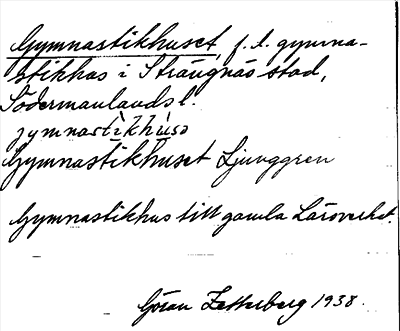 Gymnastikhuset, f. d. gymna-
stikhus i Strängnäs stad,
Södermanlands l.
jymnastìkhùsə
Gymnastikhuset Ljunggren
Gymnastikhus till gamla Läroverket.
Göran Zetterberg 1938.